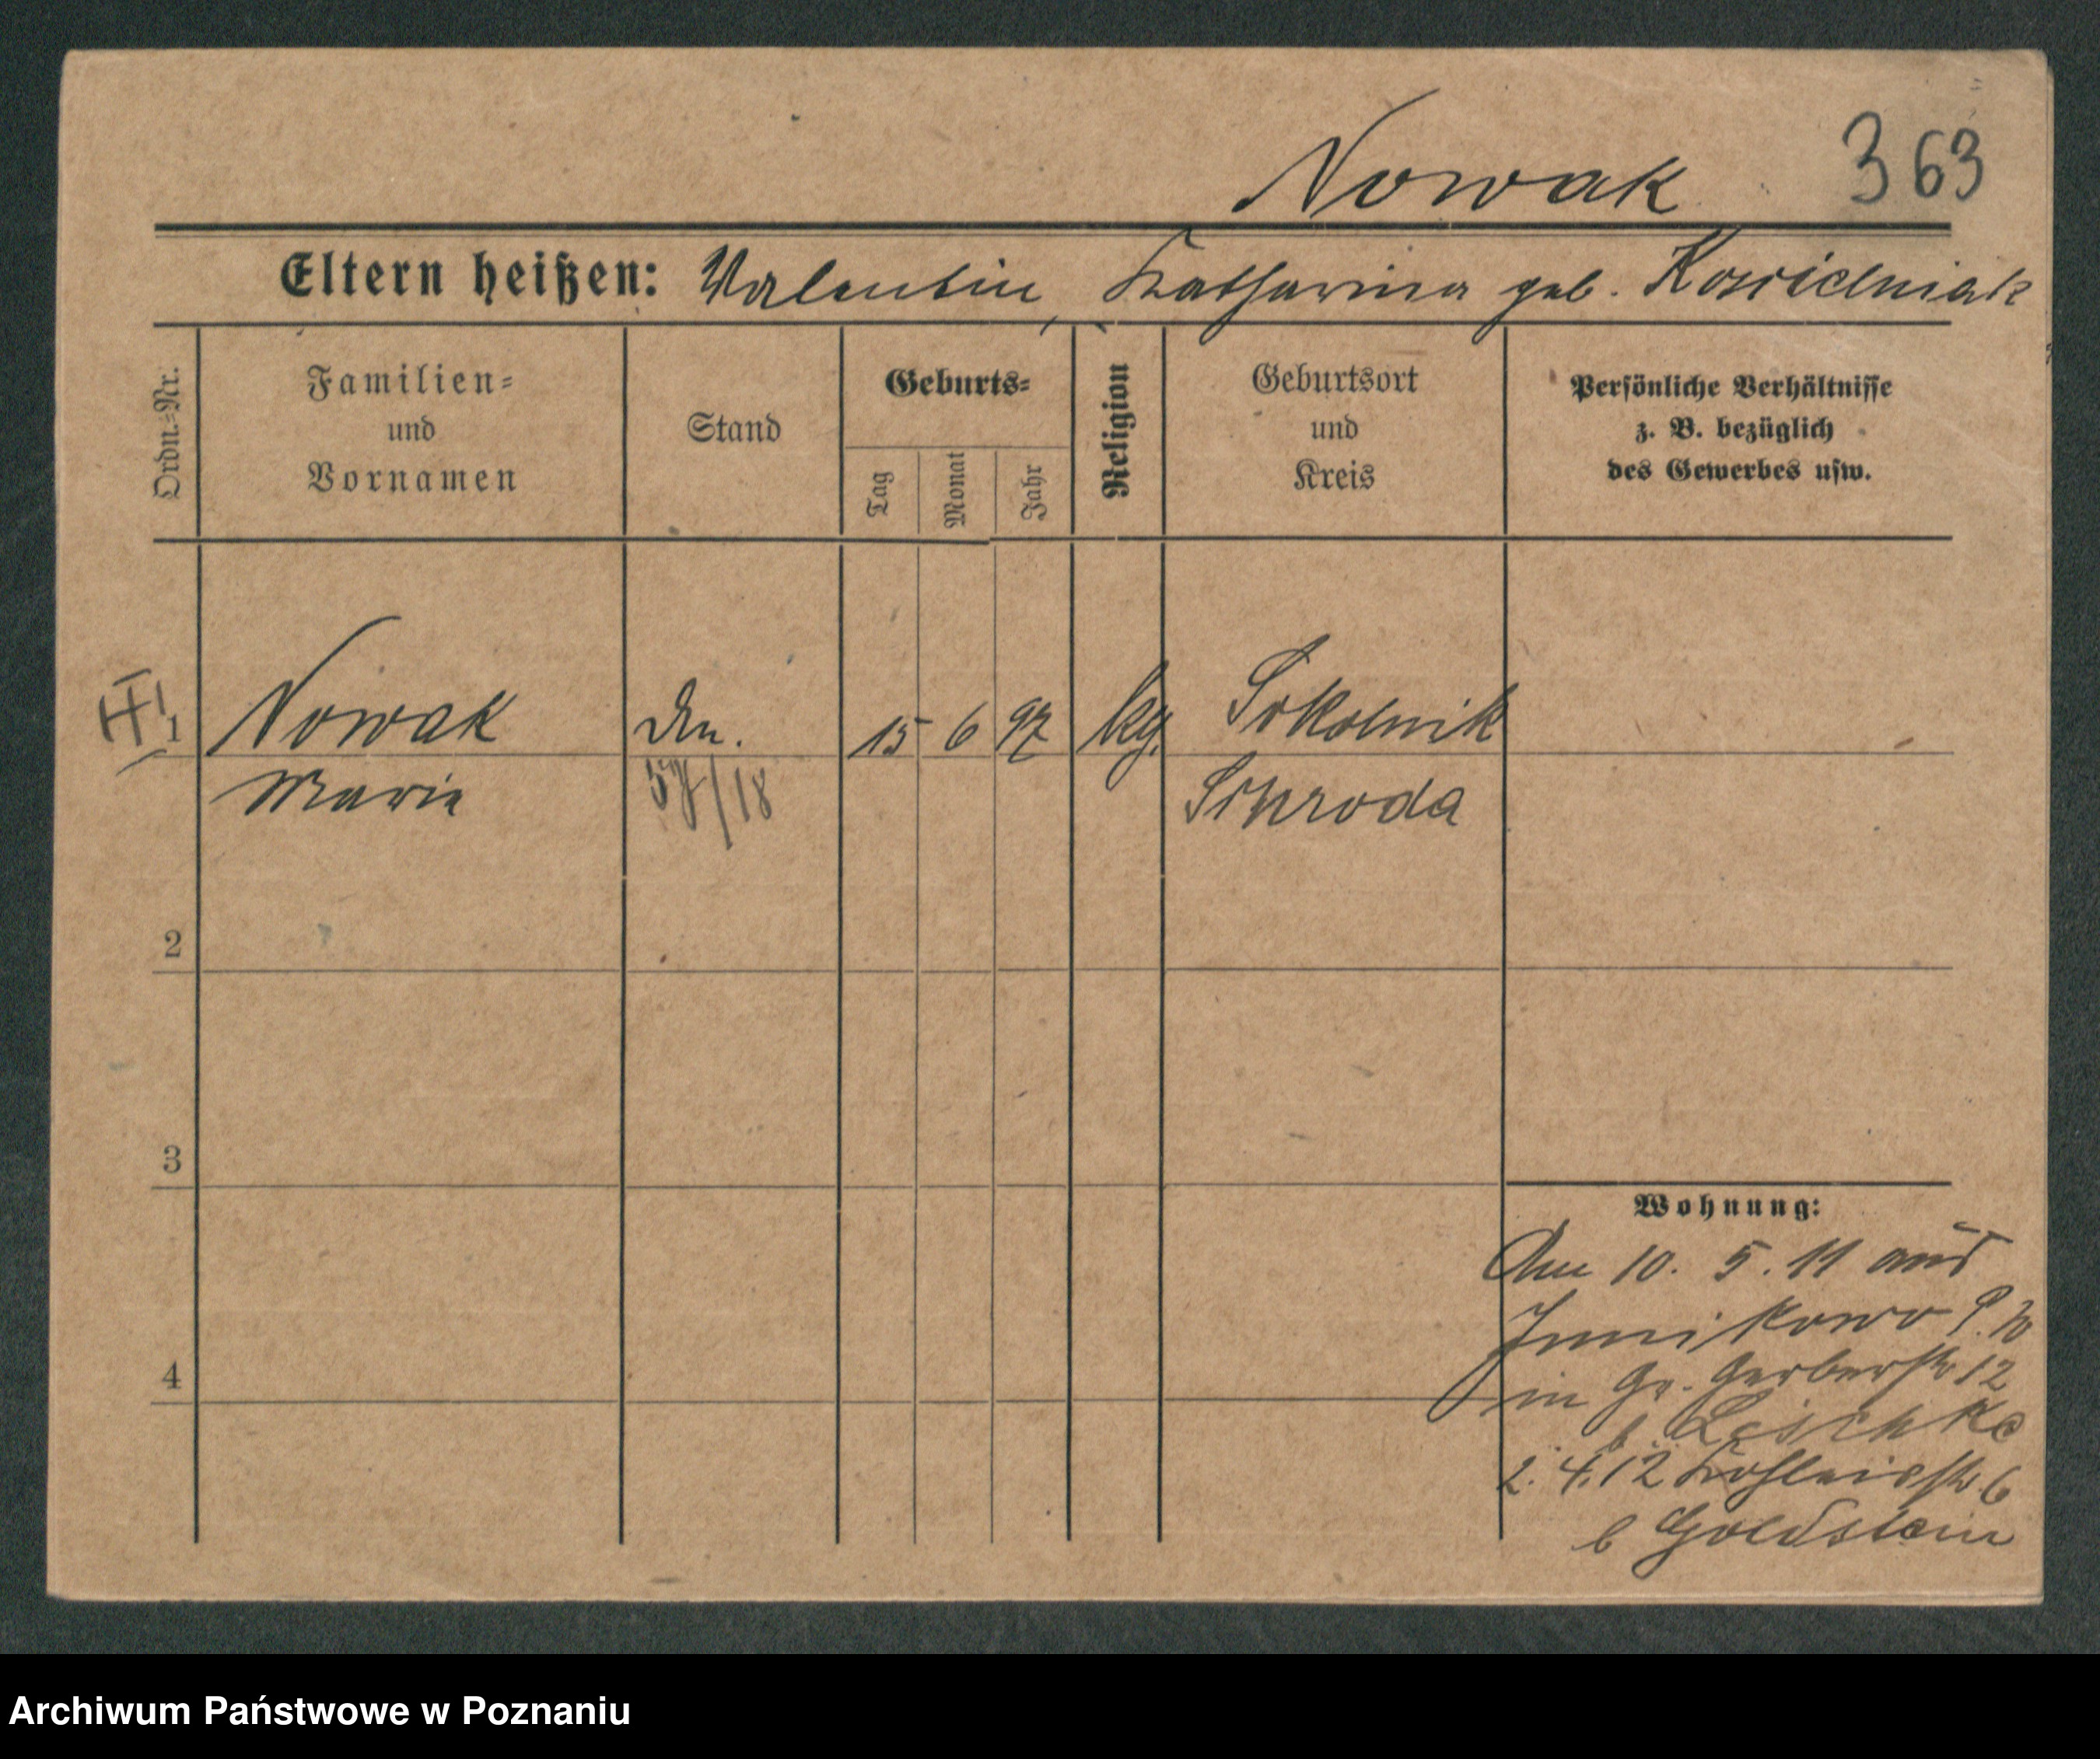 Nowak 363
Eltern heißen: Valentin, Katharina geb. Koscielniak
Ordn.-Nr.
Familien-
und
Vornamen
Stand
Geburts-
Tag
Monat
Jahr
Religion
Geburtsort
und
Kreis
Persönliche Verhältnisse
z. B. bezüglich
des Gewerbes usw.
1 Nowak 15 6 97 kg. Sokolnik
Marie 57/18 Schroda
2
3
4
Wohnung:
Am 10. 5. 11 aus
Junikowo P. W
in Gr. Gerberstr 12
b Leschke
2. 4. 12 6
b Goldstein
Archiwum Państwowe w Poznaniu